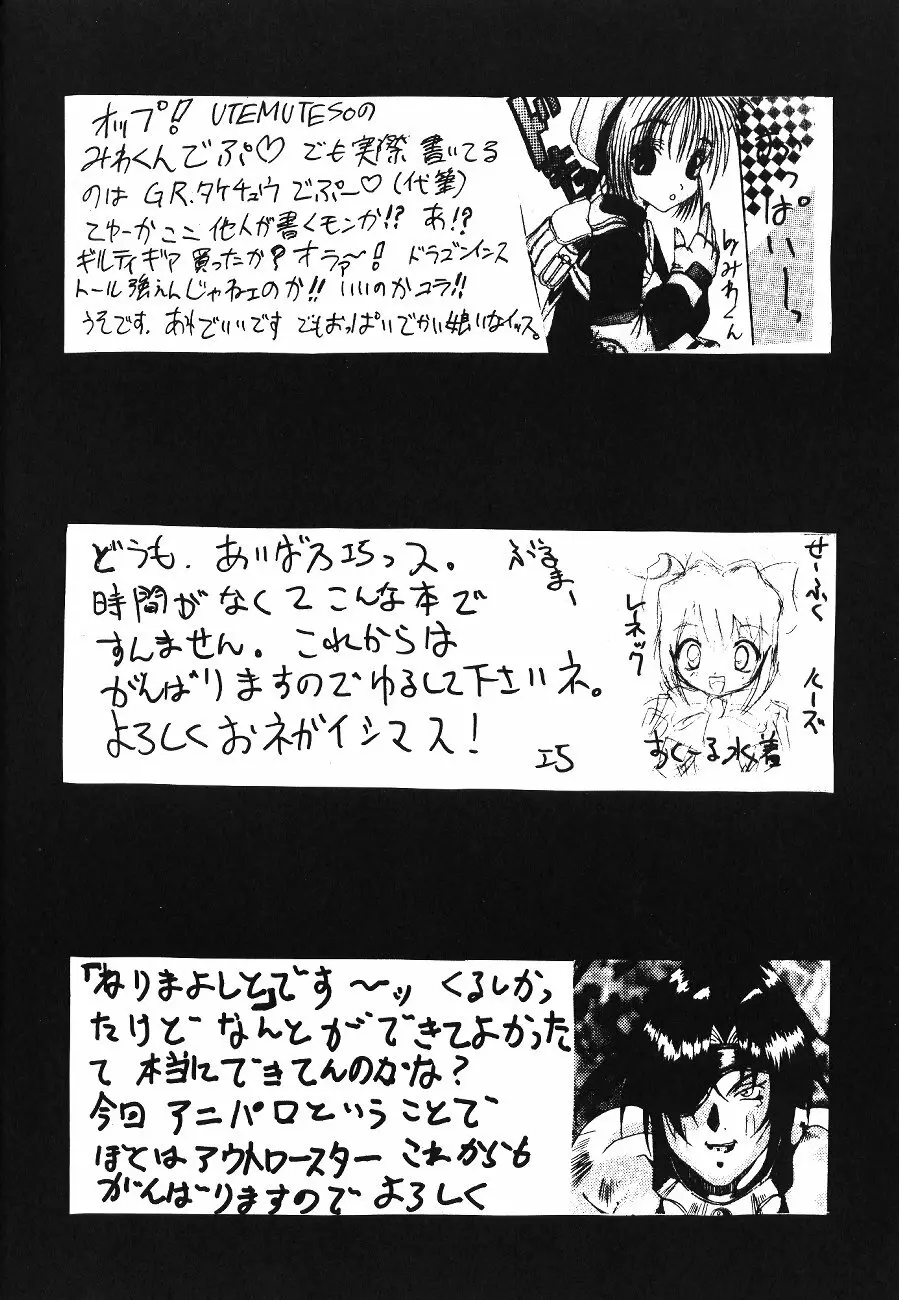 オップ! UTEMUTESOの
みわくんでぷ♡ でも実際 書いてる
のは G.R.タケチュウ でぷー♡(代筆)
てゆーか ここ 他人が書くモンか!? あ!?
ギルティギア 買ったか? オラァ〜! ドラゴンインス
トール強えんじゃねェのか!! いいのかコラ!!
うそです. あれでいいです でもおっぱいでかい娘いなイッス。
おっぱいーっ
byみわくん
どうも. あいばスエ5っス。
時間がなくてこんな本で
すんません。これからは
がんばりますのでゆるして下さいネ。
よろしくおネガイシマス!
エ5
ぶるまー
せーふく
レーネック
ルーズ
すくーる水着
「ねりまよしと」です〜ッ くるしかっ
たけど なんとができてよかった
て 本当にできてんのかな?
今回 アニパロということで
ぼくはアウトロースター これからも
がんばりますので よろしく